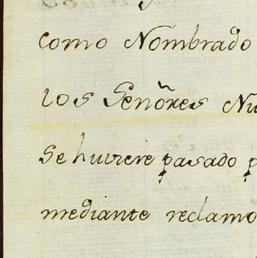 como Nombrado
los Señores Nu
se huviere pasado p
mediante reclamo